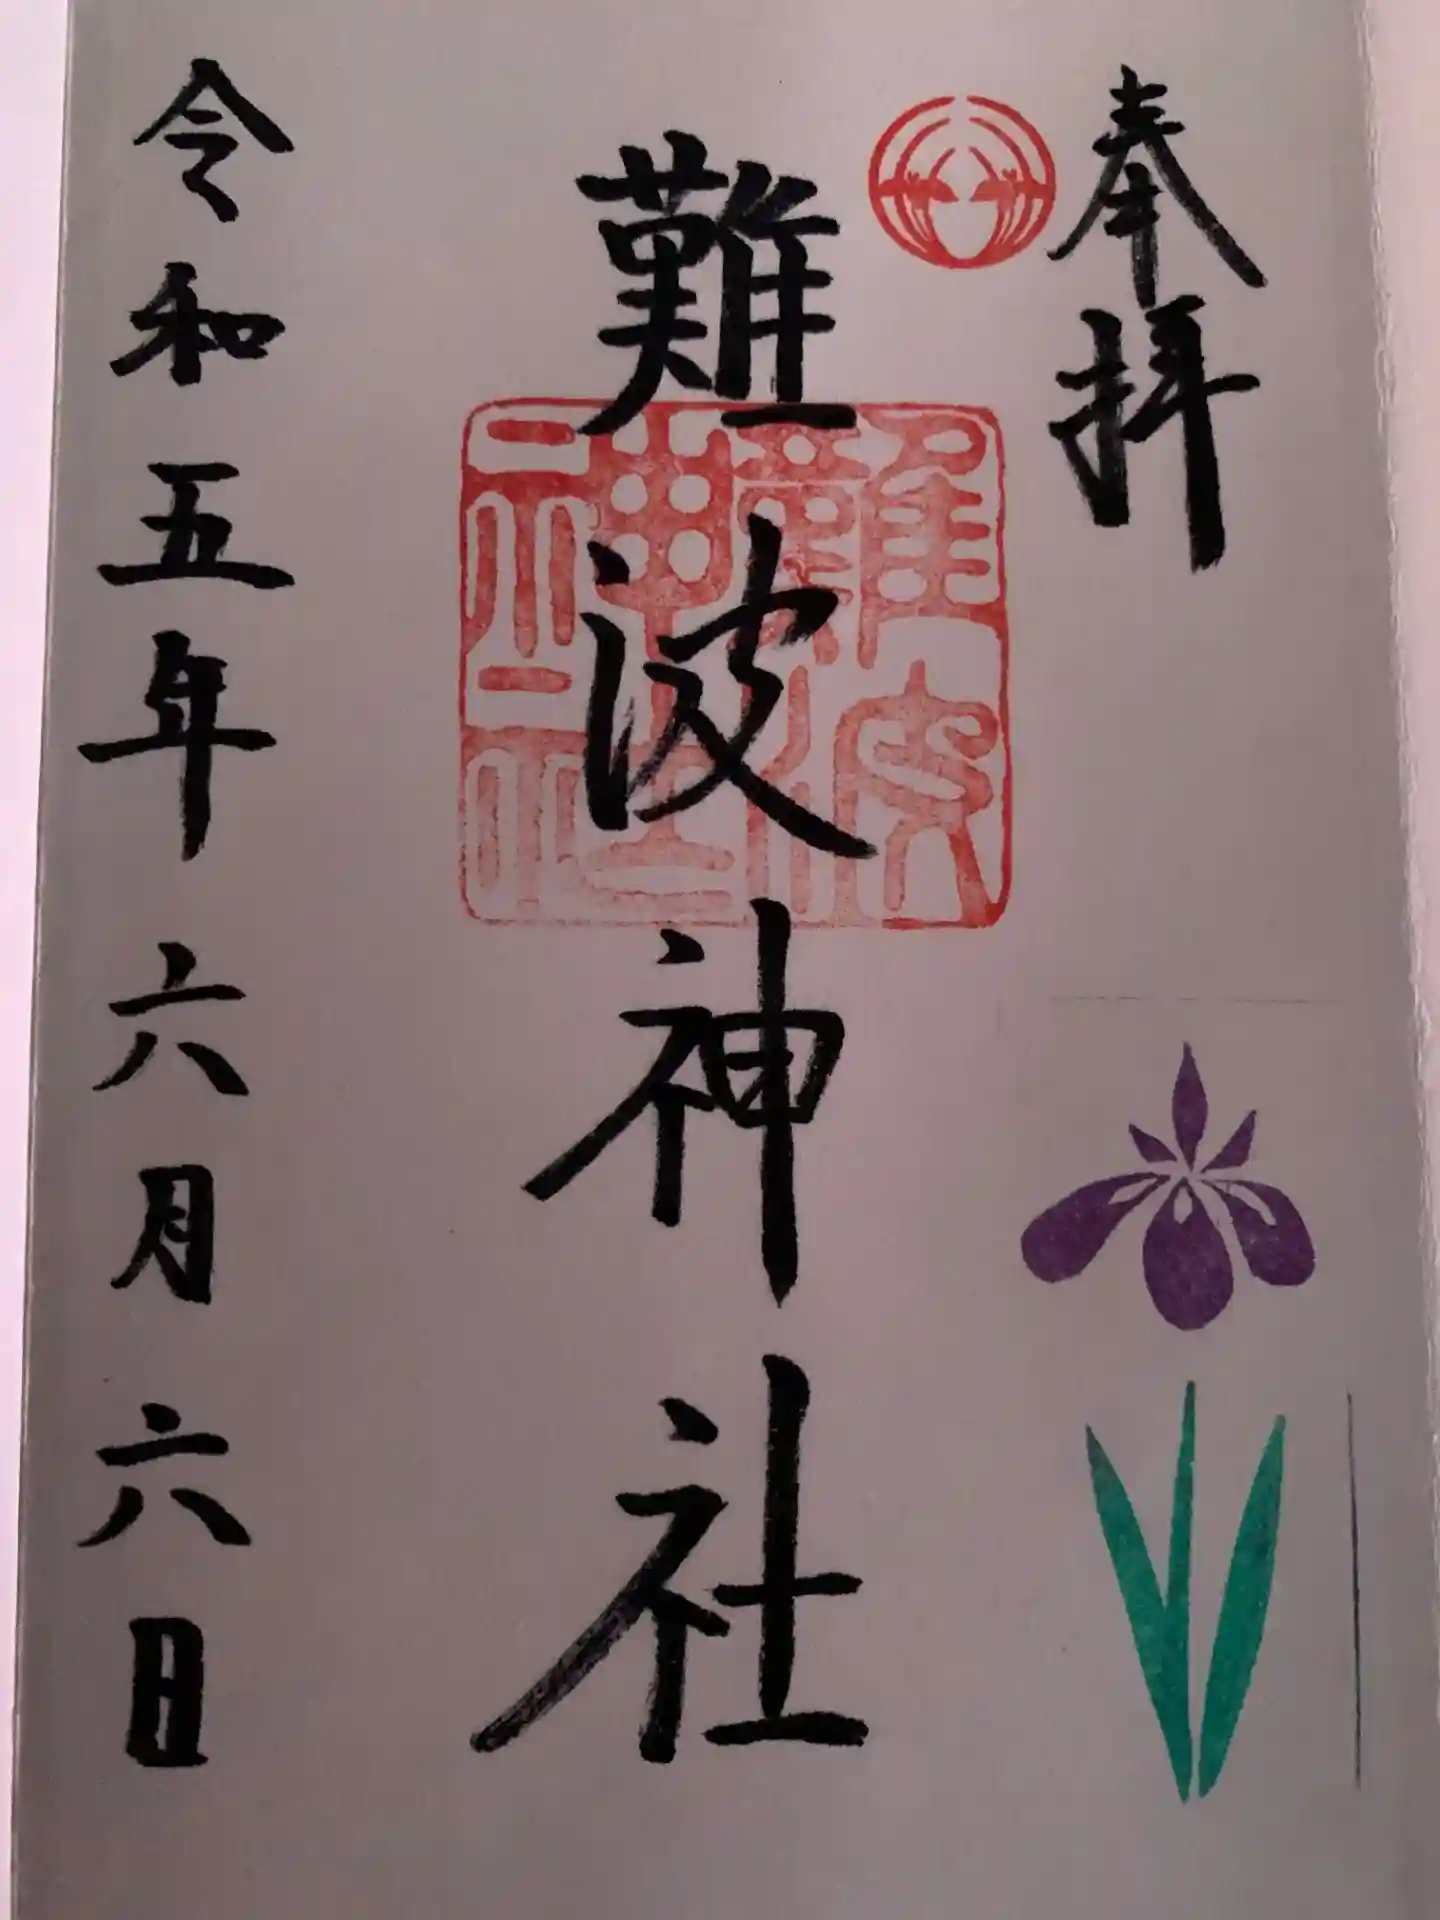 奉拝
難波神社
難波
神社
令和五年六月六日